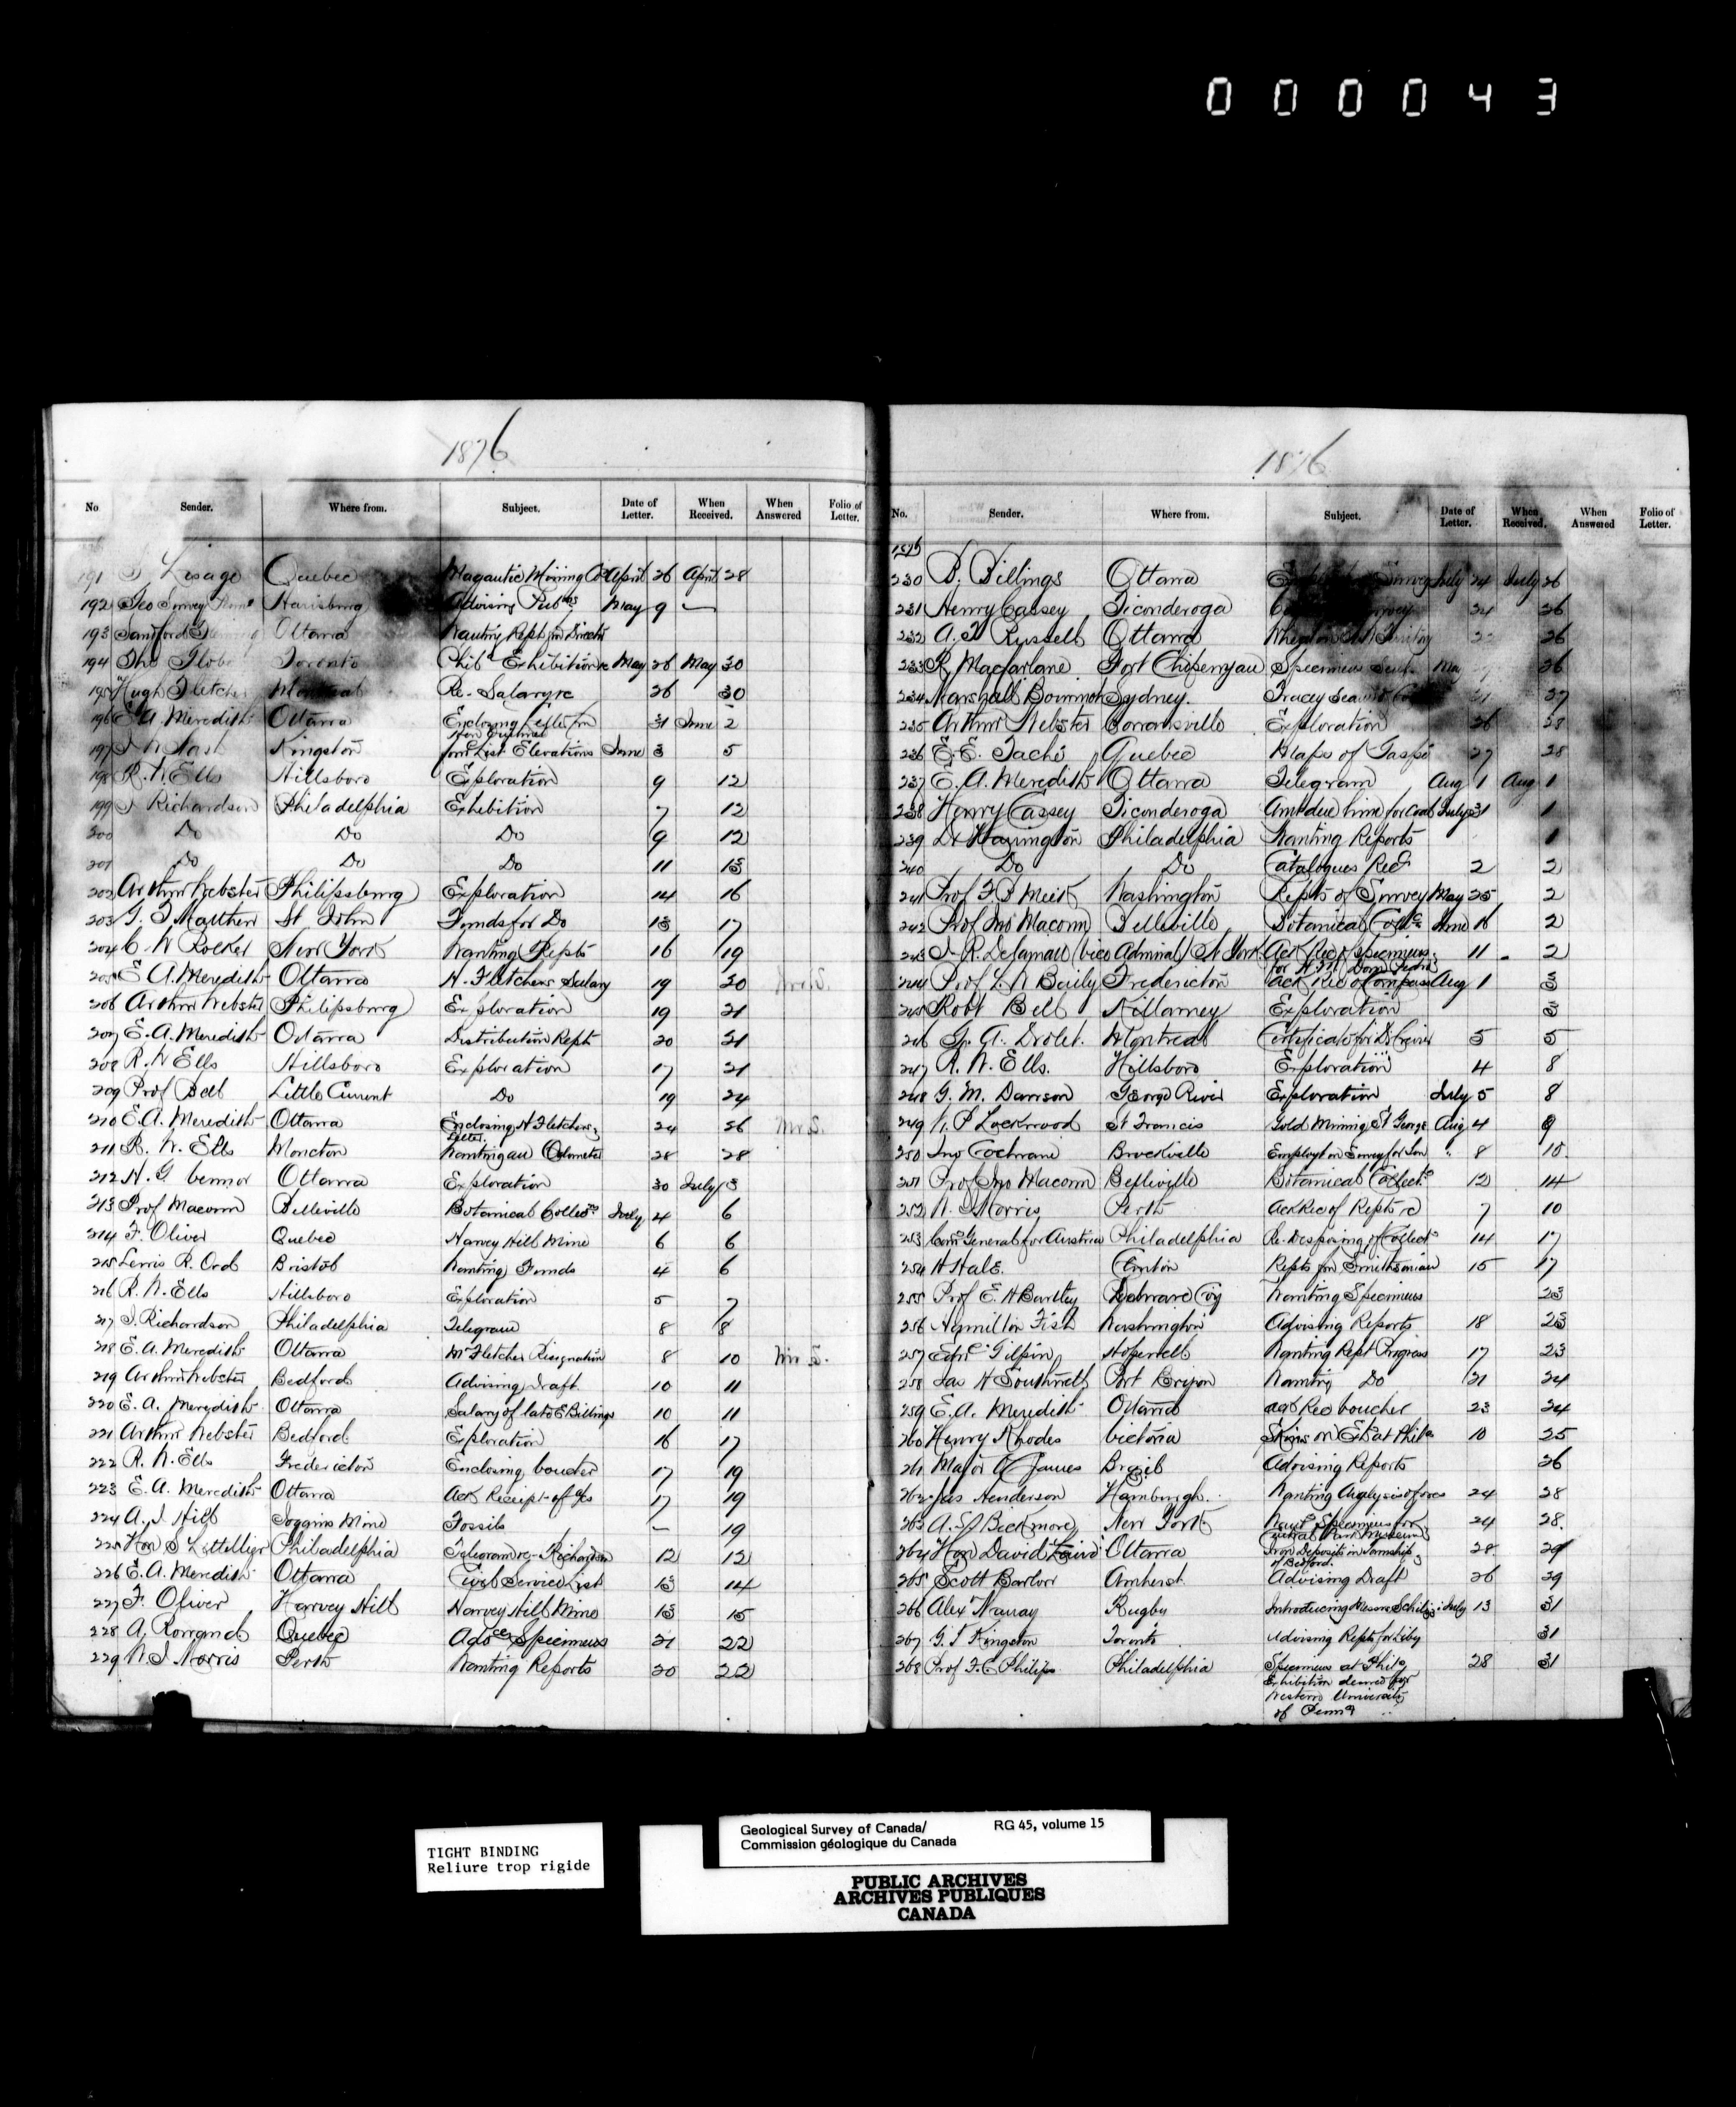 000043
1876
No Sender. Where from. Subject. Date of Letter. When Received. When Answered Folio of Letter.
191 Lesage Quebec Megantic Mining Co April 26 April 28
192 Geo Survey Penna Harisburg Advising Pubtns May 9 —
193 Sandford Ottawa Wanting Rept for Director
194 The Globe Toronto Phila Exhibition &c May 26 May 30
195 Hugh Fletcher Montreal Re- Salary &c 26 30
196 E. A. Meredith Ottawa Enclosing Letter fm 31 June 2
197 Kingston for List Elevations June 3 5
198 R. W. Ells Hillsboro Exploration 9 12
199 J Richardson Philadelphia Exhibition 7 12
200 Do Do Do 9 12
201 Do Do Do 11 13
202 Arthur Webster Philipsburg Exploration 14 16
203 G. F. Matthew St John Funds for Do 13 17
204 C. W Rocker New York Wanting Repts 16 19
205 E A. Meredith Ottawa H. Fletchers Salary 19 20
206 Arthur Webster Philipsburg Exploration 19 21
207 E. A. Meredith Ottawa Distribution Repts 20 21
208 R. W Ells Hillsboro Exploration 17 21
209 Prof Bell Little Current Do 19 24
210 E. A. Meredith Ottawa Enclosing H Fletchers Letter 24 26
211 R. W. Ells Moncton Wanting an Odometer 28 28
212 H. G Vennor Ottawa Exploration 30 July 3
213 Prof Macoun Belleville Botanical Collectns July 4 6
214 F. Oliver Quebec Harvey Hill Mine 6 6
215 Lewis R. Ord Bristol Wanting Funds 4 6
216 R. W. Ells Hillsboro Exploration 5 7
217 J. Richardson Philadelphia Telegram 8 8
218 E. A. Meredith Ottawa Mr Fletcher Resignation 8 10
219 Arthur Webster Bedford Advising Draft 10 11
220 E. A. Meredith Ottawa Salary of late E Billings 10 11
221 Arthur Webster Bedford Exploration 16 17
222 R. W. Ells Fredericton Enclosing voucher 17 19
223 E. A. Meredith Ottawa Ack Receipt of a/cs 17 19
224 A. J. Hill Joggins Mine Fossils — 19
225 Hon S Lettellier Philadelphia Telegram re- Richardson 12 12
226 E. A. Meredith Ottawa Civil Service List 13 14
227 F. Oliver Harvey Hill Harvey Hill Mine 13 15
228 A, Romand Quebec Specimens 21 22
229 W. J Morris Perth Wanting Reports 20 22
1876
No. Sender. Where from. Subject. Date of Letter. When Received. When Answered Folio of Letter.
1876
230 B. Billings Ottawa Survey July 24 July 26
231 Henry Cassey Ticonderoga 24 26
232 A. J Russell Ottawa Territory 26
233 R. Macfarlane Fort Chipewyan Specimens Sent May 26
234 Marshall Bourinot Sydney. Tracey Seam 27
235 Arthur Webster Cowansville Exploration 26 28
236 E. E. Taché Quebec Maps of Gaspé 27 28
237 E. A. Meredith Ottawa Telegram Aug 1 Aug 1
238 Henry Cassey Ticonderoga Amt due him for Coal July 31 1
239 Dr Harrington Philadelphia Wanting Reports 1
240 Do Do Catalogues Recd 2 2
241 Prof F B Meek Washington Repts of Survey May 25 2
242 Prof Jno Macoun Belleville Botanical Collc June 16 2
243 J. R. Delamare (vice Admiral) N York Ack Rec of specimens 11 2
for H.I.M. Dom Pedro
244 Prof L. W Baily Fredericton Ack Rec of Compass Aug 1 3
245 Robt Bell Killarney Exploration 3
246 G. A. Drolet. Montreal Certificate for 5 5
247 R. W. Ells. Hillsboro Exploration 4 8
248 G. M. Dawson George River Exploration July 5 8
249 W. P Lockwood St Francis Gold Mining, St George Aug 4 9
250 Jno Cochrane Brockville Employt on Survey for Son " 8 10
251 Prof Jno Macoun Belleville Botanical Collectn 12 14
252 W. Morris Perth Ack Rec of Repts &c 7 10
253 Com General for Austria Philadelphia Re- Disposing of Collectn 14 17
254 H Hale. Clinton Repts for Smithsonian 15 17
255 Prof E. H Bartley Delaware Coy Wanting Specimens 23
256 Hamilton Fish Washington Advising Reports 18 23
257 Edwd Gilpin Hopewell Wanting Rept Progress 17 23
258 Jas H Southwell Port Wanting Do 21 24
259 E. A. Meredith Ottawa ack Rec voucher 23 24
260 Henry Rhodes Victoria on Ex at Phila 10 25
261 Major O James Brazil Advising Reports 26
262 Jas Henderson Hamburgh. Wanting Analysis of ores 24 28
263 A. S. Bickmore New York Want Specimens for 24 28.
Central Park Museum
264 Hon David Laird Ottawa Iron Deposits in Township 28 29
of Bedford.
265 Scott Barlow Amherst. Advising Draft 26 29
266 Alex Murray Rugby Introducing Messrs July 13 31
267 G. T Kingston Toronto Advising Repts for Liby 31
268 Prof F. C Philips Philadelphia Specimens at Phila 28 31
Exhibition desired for
Western University
of Penna
TIGHT BINDING
Reliure trop rigide
Geological Survey of Canada/ RG 45, volume 15
Commission géologique du Canada
PUBLIC ARCHIVES
ARCHIVES PUBLIQUES
CANADA